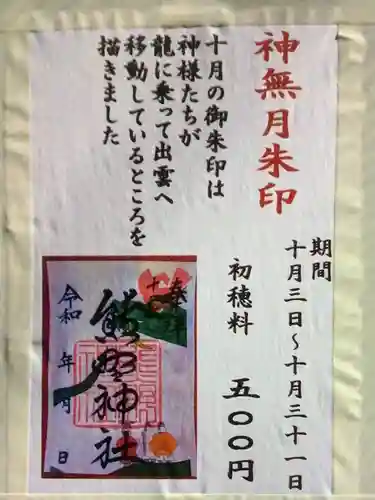 神無月朱印
期間
十月三日～十月三十一日
初穂料 五〇〇円
十月の御朱印は
神様たちが
龍に乗って出雲へ
移動しているところを
描きました
奉拝
熊野神社
令和 年 月 日